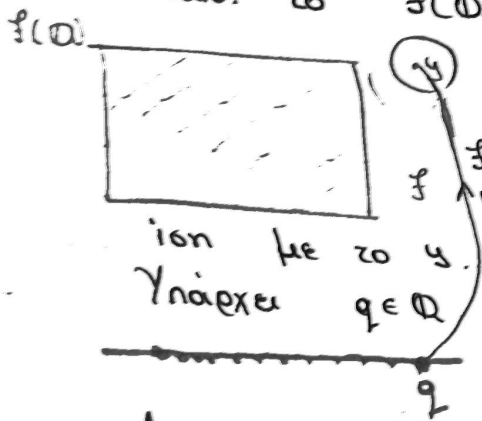 f(ℚ)
f(ℚ)
y
f
ίση με το y.
Υπάρχει q ∈ ℚ
q